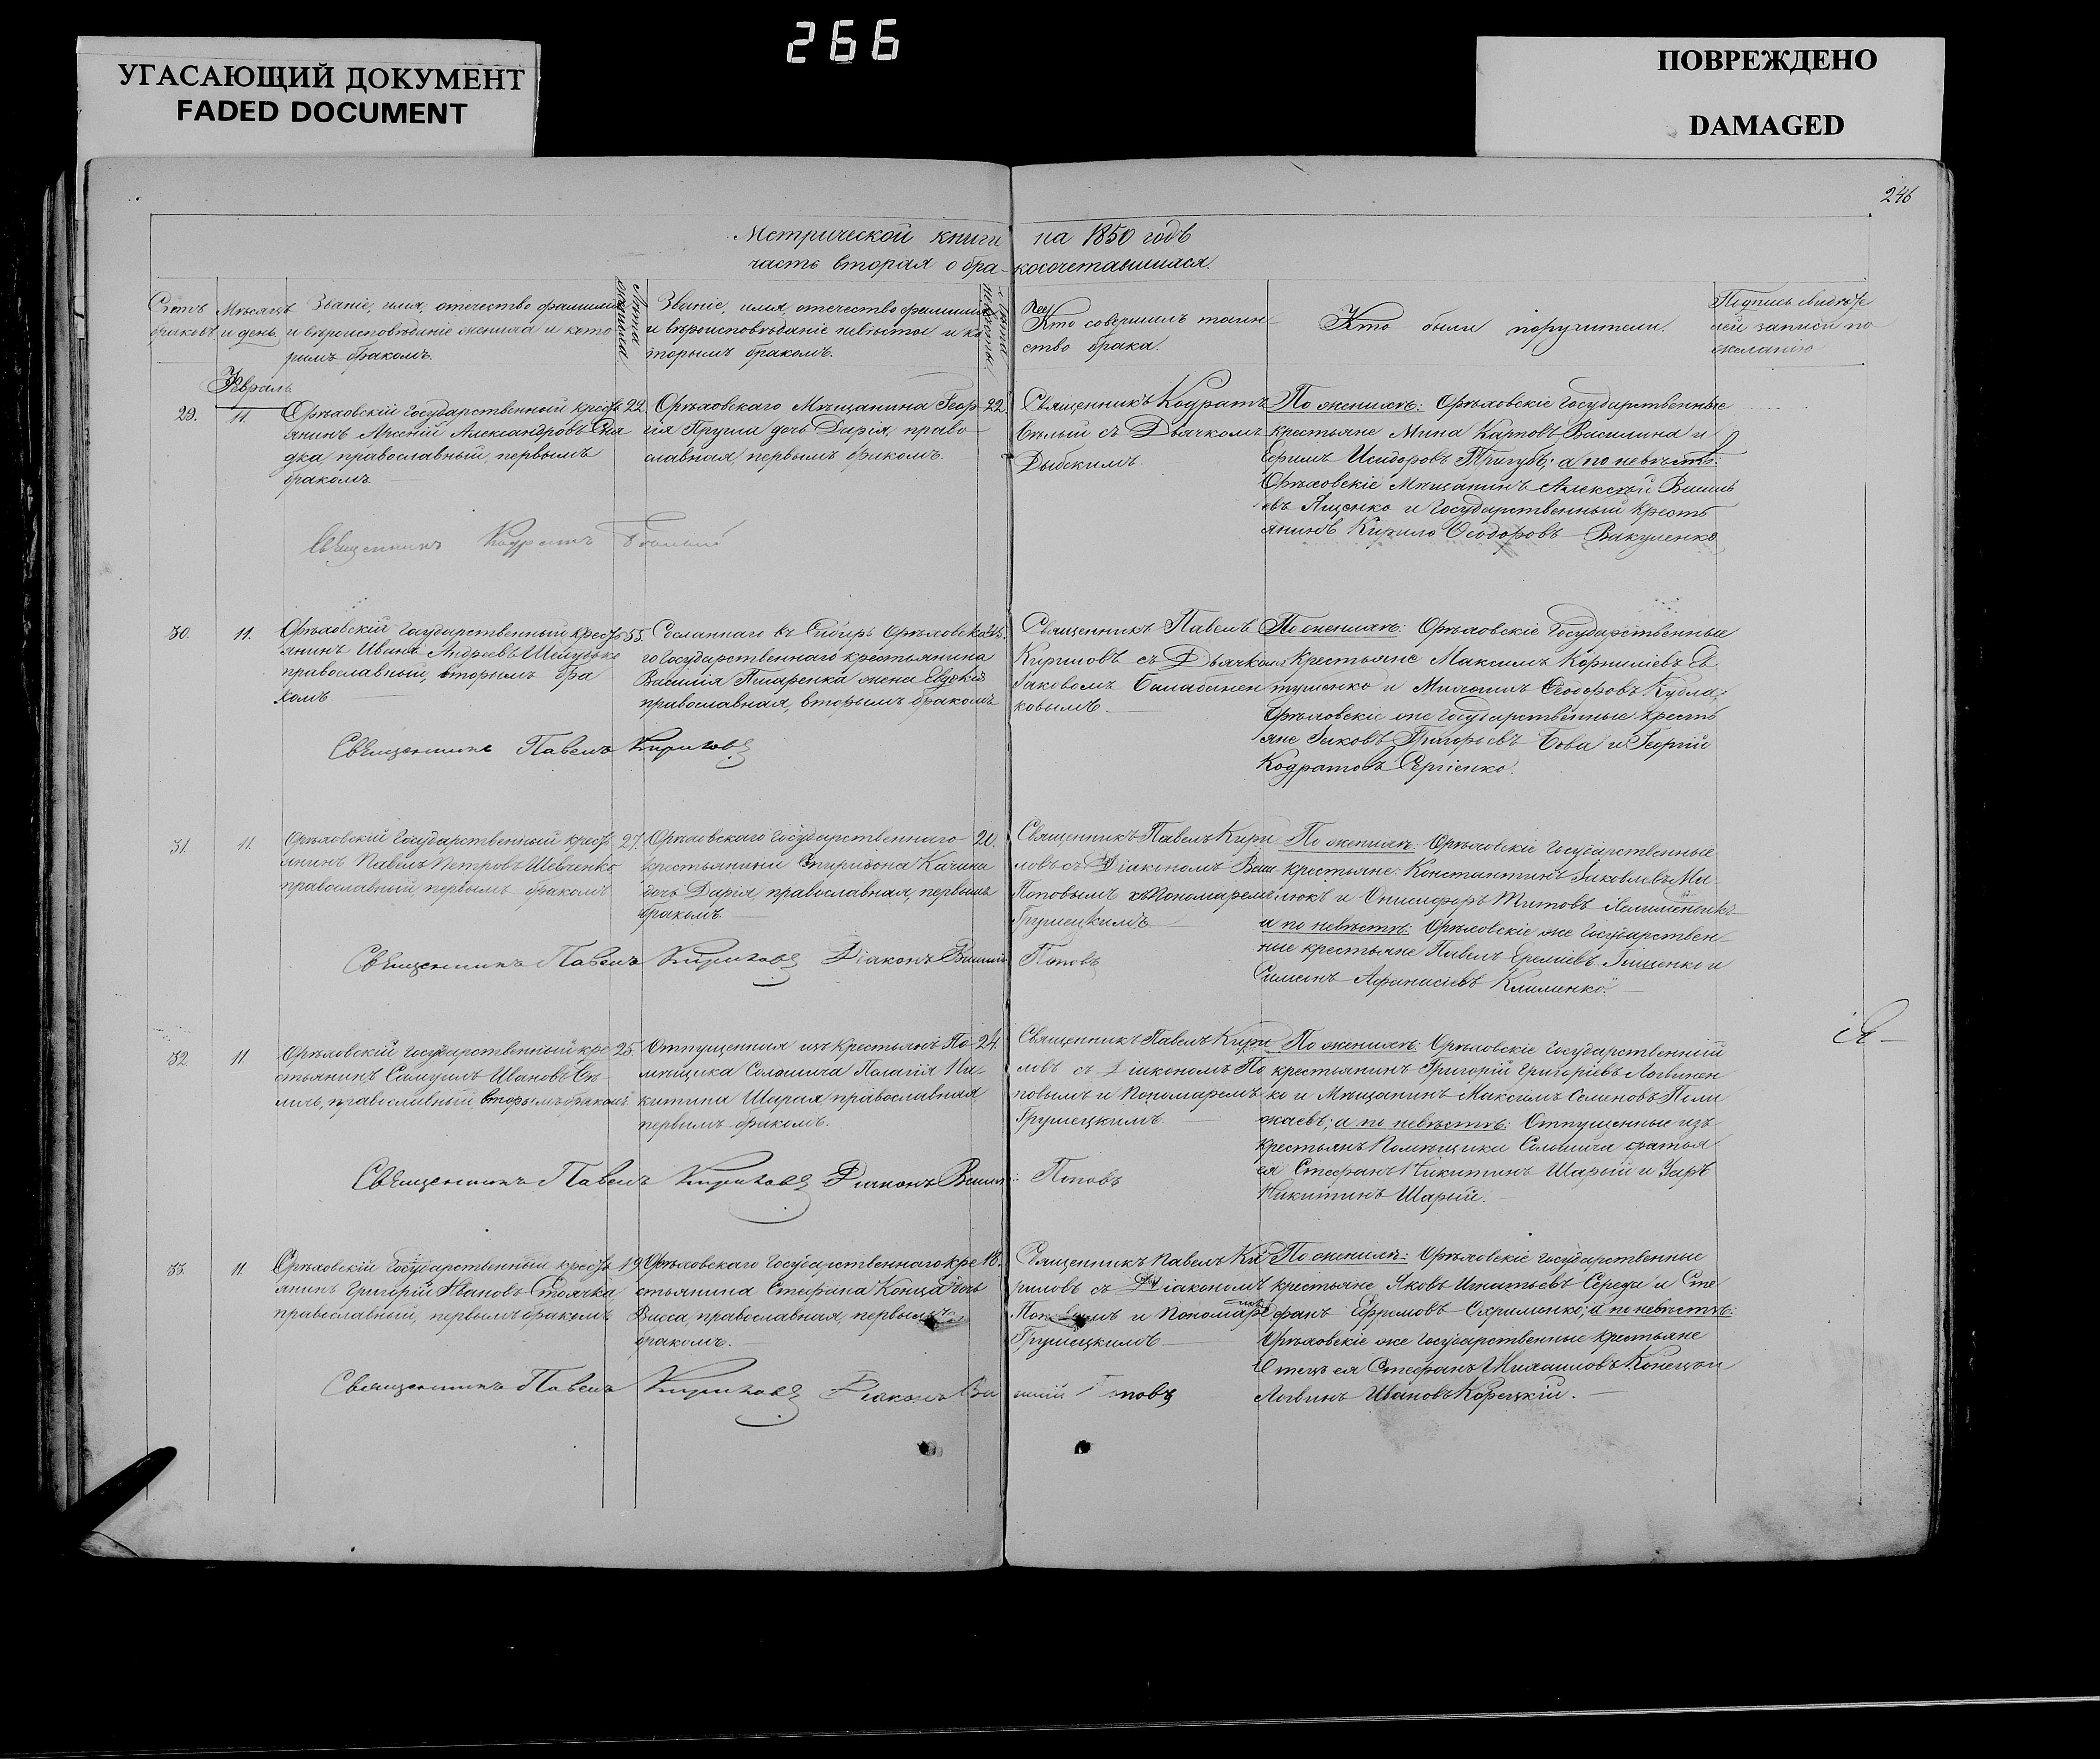 266
УГАСАЮЩИЙ ДОКУМЕНТ
FADED DOCUMENT
ПОВРЕЖДЕНО
DAMAGED
246
Метрической книги на 1850 годъ
часть вторая о бракосочетавшихся.
Счетъ браковъ
Мѣсяцъ и день
Званіе, имя, отечество фамилія
и вѣроисповѣданіе жениха и кото
рымъ бракомъ.
Лѣта жениха
Званіе, имя, отечество фамилія
и вѣроисповѣданіе невѣсты и ко
торымъ бракомъ.
Лѣта невѣсты
Кто совершалъ таин
ство брака.
Кто были поручители.
Подпись свидѣте
лей записи по
желанію
Февраль
29. 11.
Орѣховскій государственный кресть
янинъ Арсеній Александровъ
православный, первымъ
бракомъ
22.
Орѣховскаго Мѣщанина Геор
гія Пругла дочь Дарія, право
славная, первымъ бракомъ.
22.
Священникъ Кодратъ
Бѣлый съ Дьячкомъ
Дыбскимъ.
По женихѣ: Орѣховскіе Государственные
крестьяне Мина Карповъ Василина и
Ефимъ Исидоровъ Тригубъ; а по невѣстѣ:
Орѣховскіе Мѣщанинъ Алексѣй Василь
евъ Яценко и Государственный кресть
янинъ Кирило Ѳеодоровъ Вакуленко
Священникъ Кодратъ Бѣлый
30. 11.
Орѣховскій государственный кресть
янинъ Иванъ Андреевъ
православный, вторымъ бра
комъ
55.
Сосланнаго въ Сибирь Орѣховска
го Государственнаго крестьянина
Василія Писаренка жена Евдокія
православная, вторымъ бракомъ
Священникъ Павелъ
Кириловъ съ Дьячкомъ
Іаковомъ Балабанен
ковымъ.
По женихѣ: Орѣховскіе Государственные
крестьяне Максимъ Корниліевъ Ев
тушенко и Михаилъ Ѳеодоровъ Кубла;
Орѣховскіе же Государственные кресть
яне Іаковъ Григорьевъ Бова и Георгій
Кодратовъ Сергіенко.
Священникъ Павелъ Кириловъ
31. 11.
Орѣховскій Государственный кресть
янинъ Павелъ Петровъ Шевченко
православный, первымъ бракомъ
27.
Орѣховскаго Государственнаго
крестьянина Спиридона Качина
дочь Дарія, православная, первымъ
бракомъ.
20.
Священникъ Павелъ Кири
ловъ съ Діакономъ Вас.
Поповымъ и Пономаремъ
Грушецкимъ
По женихѣ: Орѣховскіе Государственные
крестьяне: Константинъ Іаковлевъ Ми
люкъ и Онисифоръ Титовъ
а по невѣстѣ: Орѣховскіе же Государствен
ные крестьяне Павелъ Еремѣевъ Гищенко и
Симеонъ Афанасіевъ Клименко.
Священникъ Павелъ Кириловъ Діаконъ Василій Поповъ
32 11
Орѣховскій государственный кре
стьянинъ Самуилъ Ивановъ
православный, вторымъ бракомъ.
25.
Отпущенная изъ крестьянъ По
мѣщика Соломича Пелагія Ни
китина Шарая, православная,
первымъ бракомъ.
24.
Священникъ Павелъ Кири
ловъ съ Діакономъ По
повымъ и Пономаремъ
Грушецкимъ
По женихѣ: Орѣховскіе Государственный
крестьянинъ Григорій Григоріевъ Логвинен
ко и Мѣщанинъ Максимъ Семеновъ Поли
жаевъ; а по невѣстѣ: Отпущенные изъ
крестьянъ Помѣщика Соломича братья
ея Стефанъ Никитинъ Шарый и
Никитинъ Шарый.
Священникъ Павелъ Кириловъ Діаконъ Васил: Поповъ
33. 11.
Орѣховскій Государственный кресть
янинъ Григорій Ивановъ Стоячка
православный, первымъ бракомъ
19.
Орѣховскаго Государственнаго кре
стьянина Стефана Конца дочь
Васса, православная, первымъ
бракомъ.
18.
Священникъ Павелъ Ки
риловъ съ Діакономъ
Поповымъ и Пономаремъ
Грушецкимъ
По женихѣ: Орѣховскіе Государственные
крестьяне Яковъ Игнатьевъ Середа и Сте
фанъ Ефремовъ Охрименко; а по невѣстѣ:
Орѣховскіе же Государственные крестьяне
Отецъ ея Стефанъ Михаиловъ Конецъ и
Логвинъ Ивановъ Корецкій.
Священникъ Павелъ Кириловъ Діаконъ Василій Поповъ